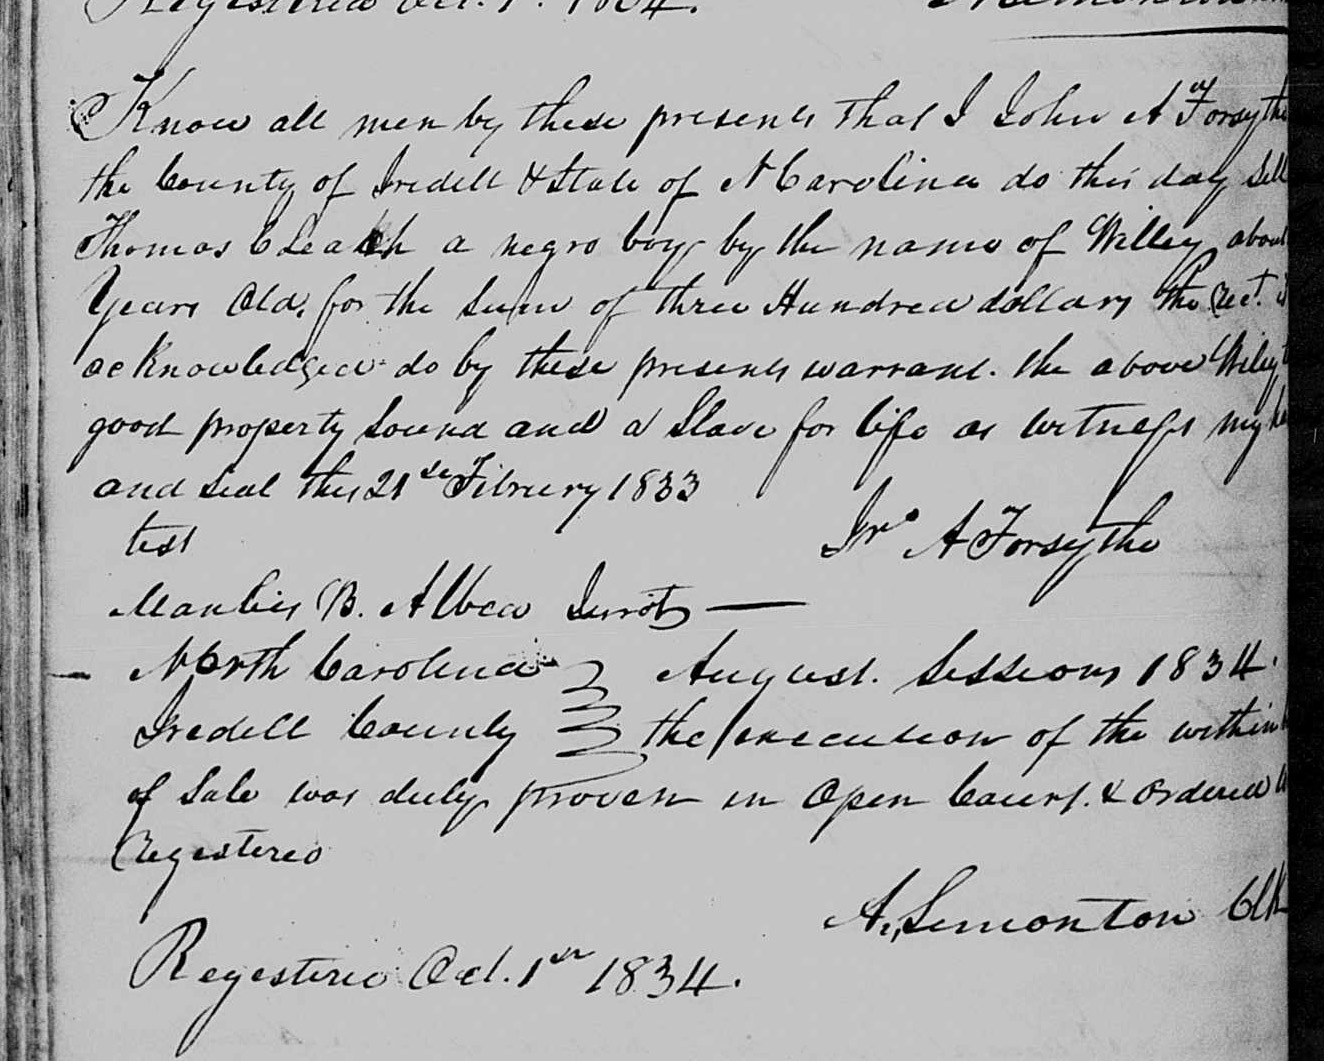 Registered Oct. 1st. 1834.
Know all men by these presents that I John A Forsythe
the County of Iredell & State of N Carolina do this day Sell
Thomas C Leach a negro boy by the name of Willey about
Years Old, for the Sum of three Hundred dollars the Rect. is
acknowledged do by these presents warrant. the above Wiley
good property Sound and a Slave for life as witness my
and Seal this 21st Februery 1833
test
Jno A Forsythe
B. Albea Jurat
North Carolina August. Sessions 1834.
Iredell County the execution of the within
of Sale was duly proven in Open Court. & ordered
Registered
A. Simonton Clk
Registered Oct. 1st 1834.